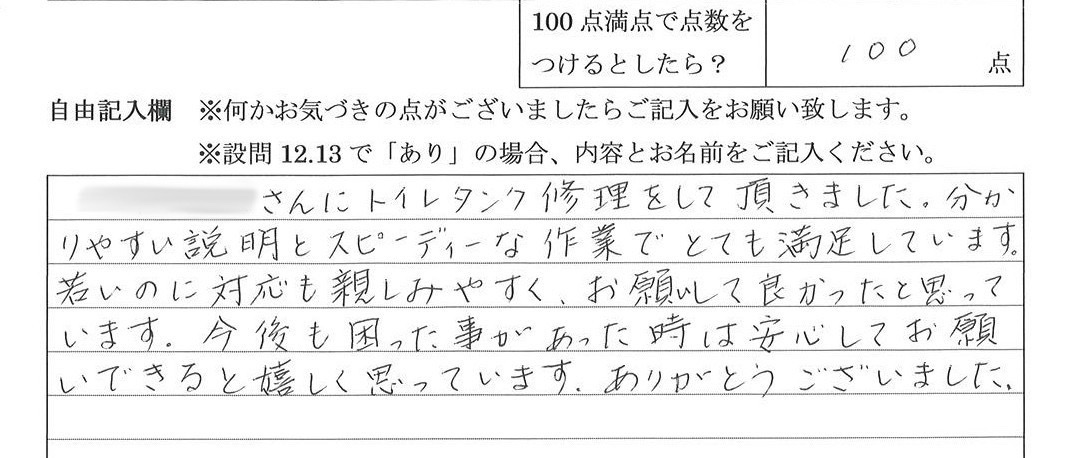 100点満点で点数を
つけるとしたら?
100 点
自由記入欄 ※何かお気づきの点がございましたらご記入をお願い致します。
※設問12.13で「あり」の場合、内容とお名前をご記入ください。
さんにトイレタンク修理をして頂きました。分か
りやすい説明とスピーディーな作業でとても満足しています。
若いのに対応も親しみやすく、お願いして良かったと思って
います。今後も困った事があった時は安心してお願
いできると嬉しく思っています。ありがとうございました。